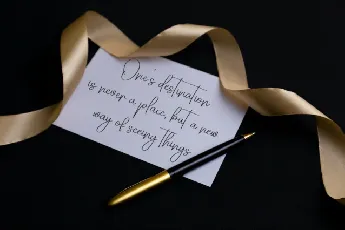 One's destination
is never a place, but a new
way of seeing things